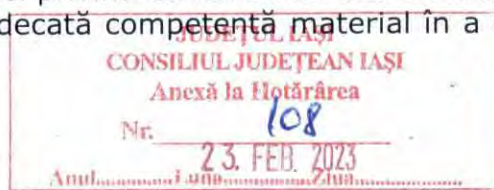 decată competentă material în a
JUDEȚUL IAȘI
CONSILIUL JUDEȚEAN IAȘI
Anexă la Hotărârea
Nr. 108
23. FEB. 2023
Anul............Luna............Ziua............